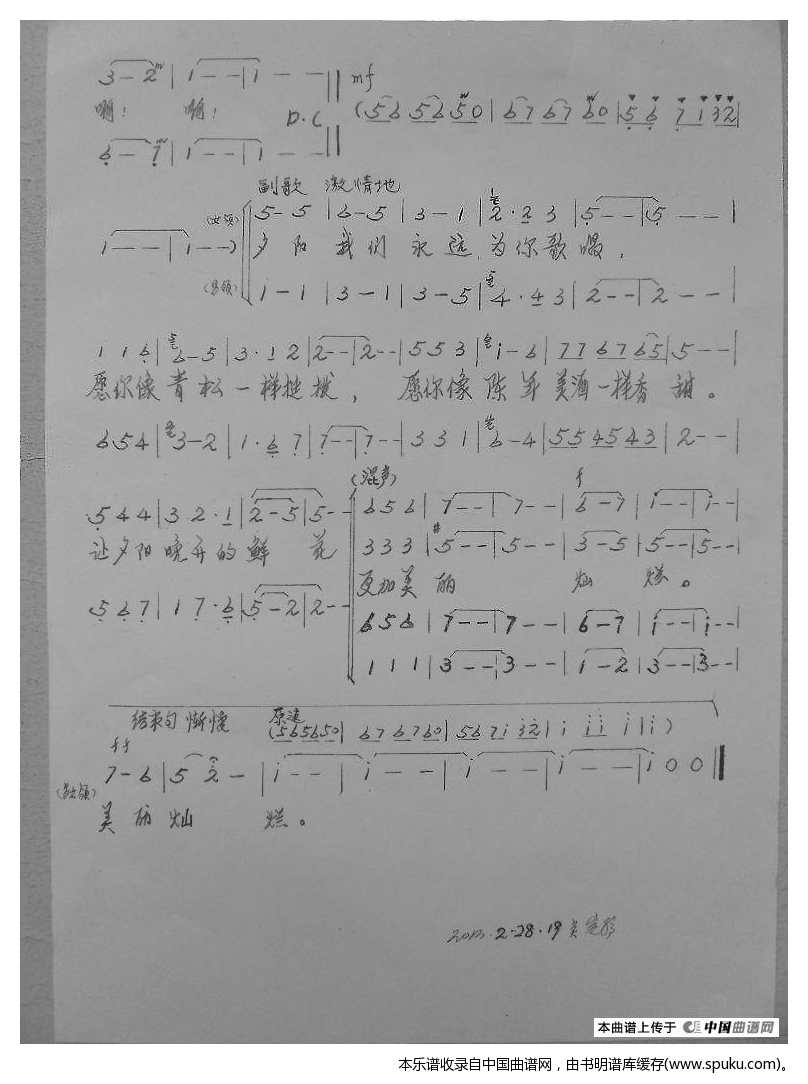 3 - 2 | 1 - - | 1 - - || mf
啊! 啊! D.C (56 56 50 | 67 67 60 | 5 6 7 1 32 |
6 - 7 | 1 - - | 1 - - ||
副歌 激情地
(女领) 5 - 5 | 6 - 5 | 3 - 1 | 2 · 2 3 | 5 - - | 5 - - |
1 - - | 1 - - ) 夕阳 我们 永远 为你歌唱,
(男领) i - 1 | 3 - 1 | 3 - 5 | 4 · 4 3 | 2 - - | 2 - - |
1 1 6 | 6 - 5 | 3 · 1 2 | 2 - - | 2 - - | 5 5 3 | i - 6 | 7 7 6 7 6 5 | 5 - - |
愿你像青松一样挺拔, 愿你像陈年美酒一样香甜。
6 5 4 | 3 - 2 | 1 · 6 7 | 7 - - | 7 - - | 3 3 1 | 6 - 4 | 5 5 4 5 4 3 | 2 - - |
(混声) f
5 4 4 | 3 2 · 1 | 2 - 5 | 5 - - | 6 5 6 | 7 - - | 7 - - | 6 - 7 | i - - | i - - |
3 3 3 | #5 - - | 5 - - | 3 - 5 | 5 - - | 5 - - |
让夕阳晚开的鲜花
更加美丽 灿烂。
5 6 7 | 1 7 · 6 | 5 - 2 | 2 - - | 6 5 6 | 7 - - | 7 - - | 6 - 7 | i - - | i - - |
1 1 1 | 3 - - | 3 - - | i - 2 | 3 - - | 3 - - |
结束句 渐慢 原速
(56 56 50 | 67 67 60 | 56 7i 32 | i i i i | i )
ff
7 - 6 | 5 2 - | i - - | i - - | i - - | i - - | i 0 0 ||
美丽灿 烂。
2-28·19
本曲谱上传于 中国曲谱网
本乐谱收录自中国曲谱网，由书明谱库缓存(www.spuku.com)。